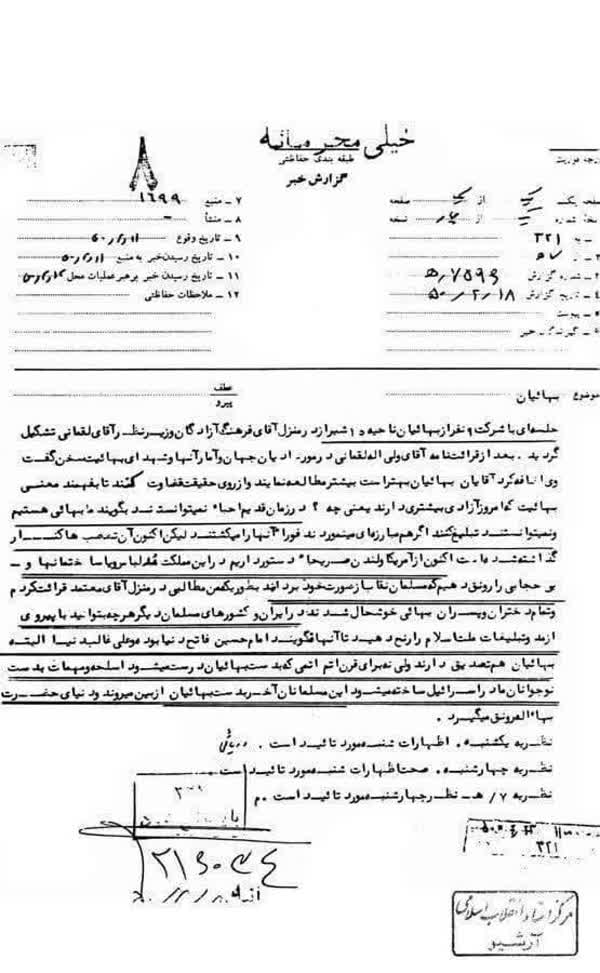 خیلی محرمانه
طبقه بندی حفاظتی
گزارش خبر
درجه فوریت
صفحه یک از یک صفحه
نسخه شماره از نسخه
۱ - به ۳۲۱
۲ - از ۵۷
۳ - شماره گزارش ۷۵۹۹/ه‍
۴ - تاریخ گزارش ۵۰/۲/۱۸
۵ - پیوست
۶ - گیرندگان خبر
۷ - منبع ۱۶۹۹
۸ - منشأ -
۹ - تاریخ وقوع
۱۰ - تاریخ رسیدن خبر به منبع
۱۱ - تاریخ رسیدن خبر برهبر عملیات محل
۱۲ - ملاحظات حفاظتی
موضوع بهائیان
عطف
پیرو
جلسه‌ای با شرکت ۹ نفر از بهائیان ناحیه ۱۵ شیراز در منزل آقای فرهنگ آزادگان وزیر نظر آقای لقمانی تشکیل
گردید . بعد از قرائت نامه آقای ولی اله لقمانی در مورد ادیان جهان و آمار آنها و شهدای بهائیت سخن گفت
وی اضافه کرد آقایان بهائیان بهتر است بیشتر مطالعه نمایند و از روی حقیقت قضاوت کنند تا بفهمند معنی
بهائیت که امروز آزادی بیشتری دارند یعنی چه ؟ در زمان قدیم احباء نمیتوانستند بگویند ما بهائی هستیم
و نمیتوانستند تبلیغ کنند اگر هم مبارزه‌ای مینمودند فوراً آنها را میکشتند لیکن اکنون آن تعصب ها کنار
گذاشته شده است اکنون از آمریکا و لندن صریحاً دستور داریم در این مملکت مد لباس و یا ساختمانها و
بی حجابی را رونق دهیم که مسلمان نقاب از صورت خود بردارند بطوریکه من مطالبی در منزل آقای معتمد قرائت کردم
و تمام دختران و پسران بهائی خوشحال شدند در ایران و کشورهای مسلمان دیگر هر چه بتوانید با پیروی
از مد و تبلیغات ملت اسلام را رنج دهید تا آنها نگویند امام حسین فاتح دنیا بوده و علی غالب دنیا البته
بهائیان هم تصدیق دارند ولی نه برای قرن اتم اتمی که بدست بهائیان درست میشود اسلحه و مهمات بدست
نوجوانان ما در اسرائیل ساخته میشود این مسلمانان آخر بدست بهائیان از بین میروند و دنیای حضرت
بهاءاله رونق میگیرد .
نظریه یکشنبه . اظهارات شنبه مورد تائید است .
نظریه چهارشنبه . صحت اظهارات شنبه مورد تائید است
نظریه ۷/ه‍ - نظر چهارشنبه مورد تائید است . م
۳۲۱
مرکز اسناد انقلاب اسلامی
آرشیو